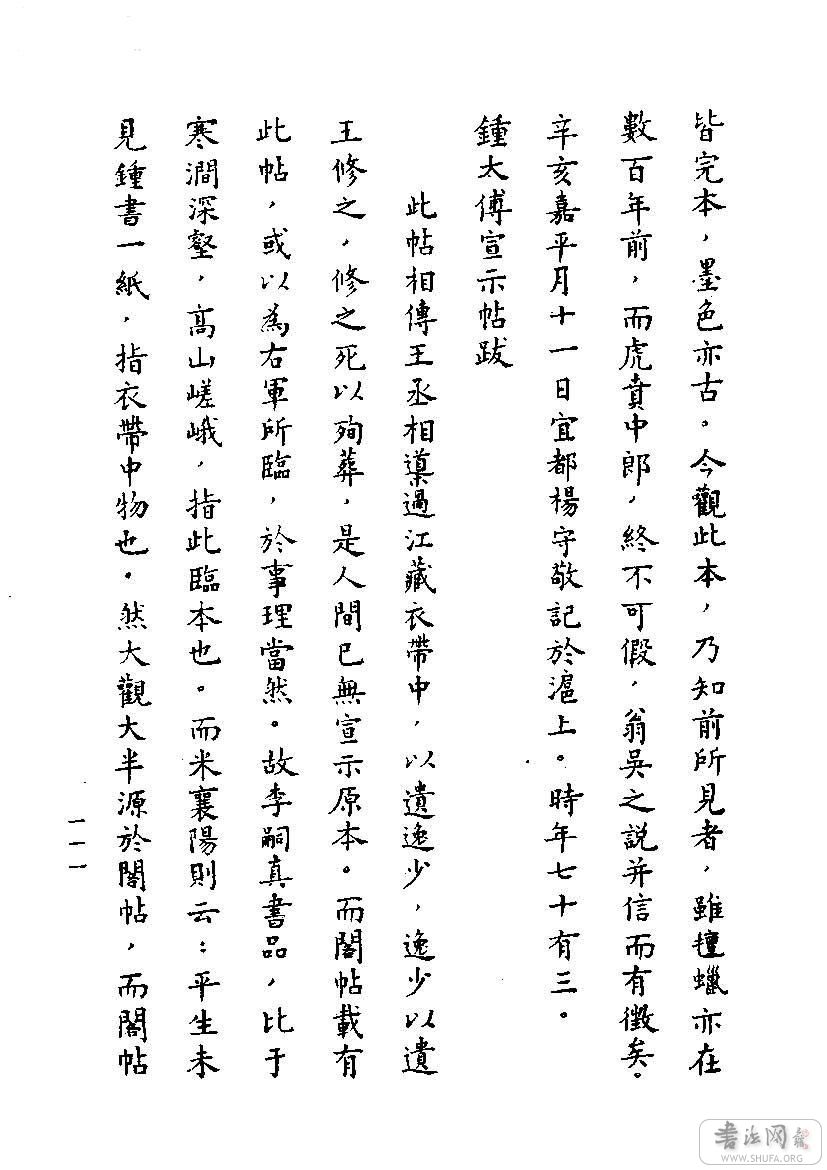 皆完本，墨色亦古。今觀此本，乃知前所見者，雖氊蠟亦在
數百年前，而虎賁中郎，終不可假，翁吳之説并信而有徵矣。
辛亥嘉平月十一日宜都楊守敬記於滬上。時年七十有三。
鍾太傅宣示帖跋
此帖相傳王丞相導過江藏衣帶中，以遺逸少，逸少以遺
王修之，修之死以殉葬，是人間已無宣示原本。而閣帖載有
此帖，或以為右軍所臨，於事理當然。故李嗣真書品，比于
寒澗深壑，高山嵯峨，指此臨本也。而米襄陽則云：平生未
見鍾書一紙，指衣帶中物也。然大觀大半源於閣帖，而閣帖
一一一
書法网
WWW.SHUFA.ORG